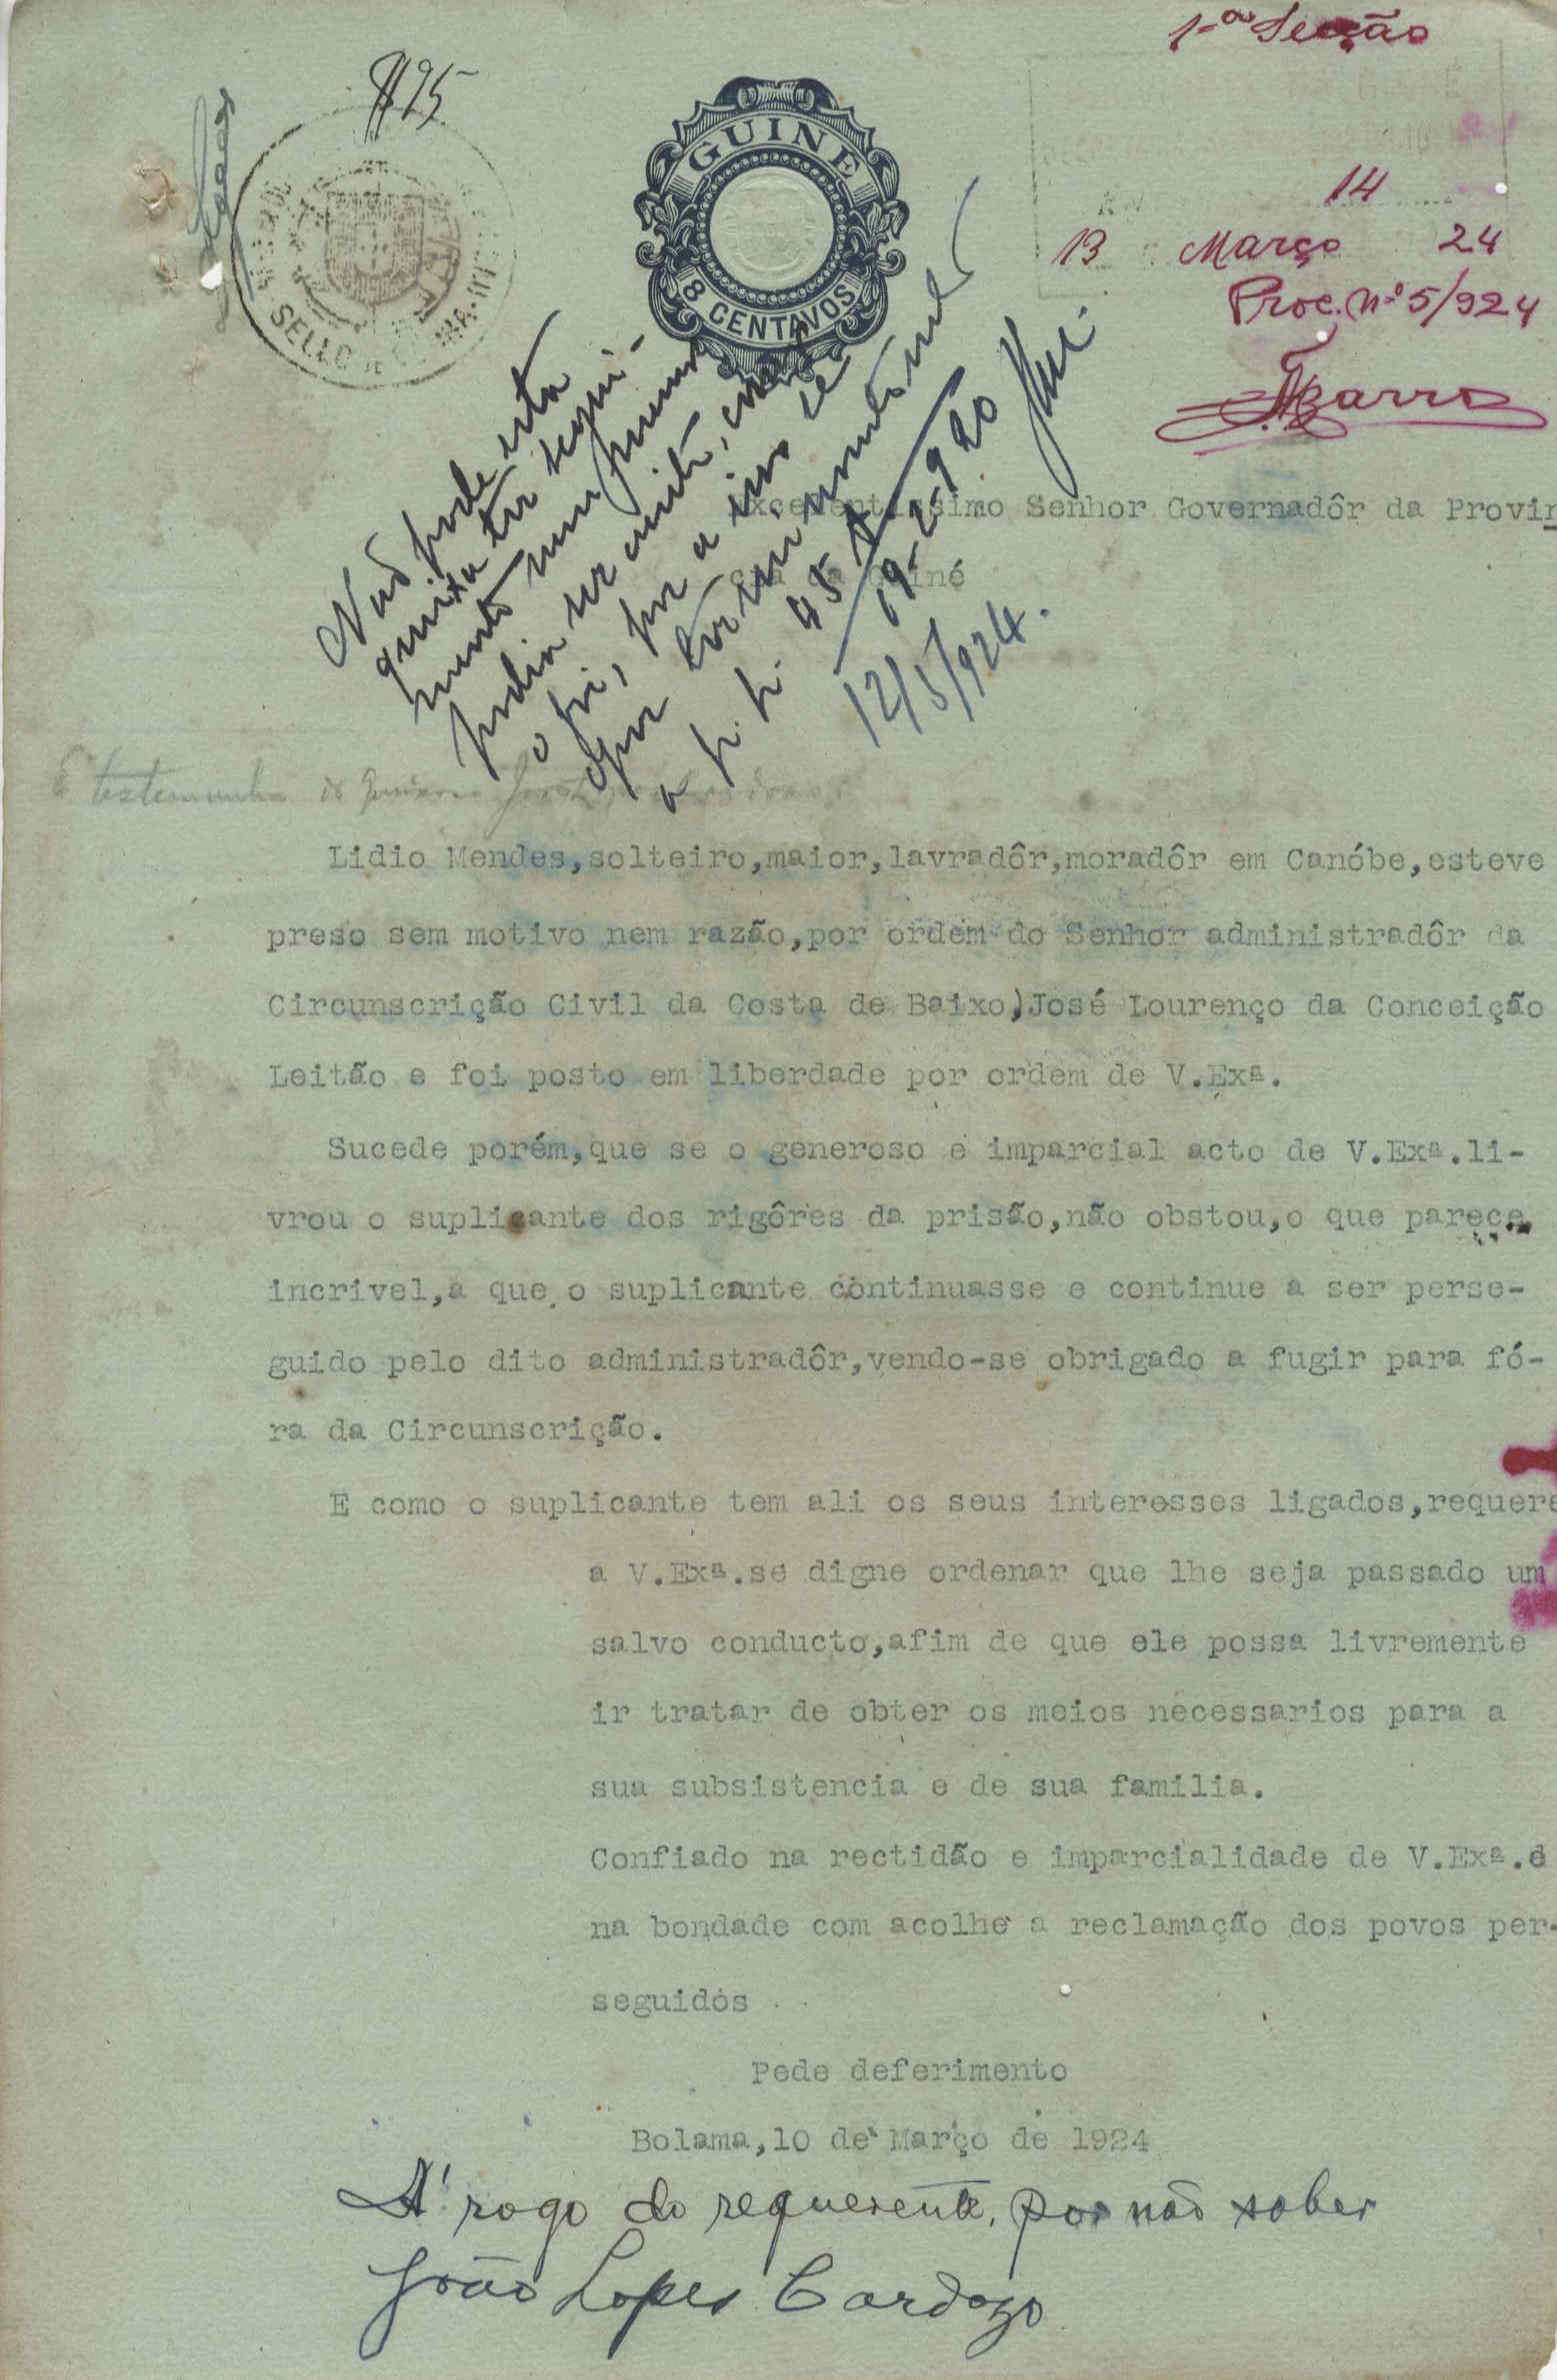 1-ª Secção
$95
GUINE
8 CENTAVOS
SELLO
14
13 Março 24
Proc. Nº 5/924
Barros
Não pode esta
queixa ter segui-
mento nem nunca
podia ser aceite, como
o foi, por a isso se
opor
a p. p. 45
19-2-920
12/5/924.
Excelentissimo Senhor Governadôr da Provin
cia da Guiné
É testemunha
Lidio Mendes,solteiro,maior,lavradôr,moradôr em Canóbe,esteve
preso sem motivo nem razão,por ordem do Senhor administradôr da
Circunscrição Civil da Costa de Baixo)José Lourenço da Conceição
Leitão e foi posto em liberdade por ordem de V.Exª.
Sucede porém,que se o generoso e imparcial acto de V.Exª.li-
vrou o suplicante dos rigôres da prisão,não obstou,o que parece
incrivel,a que o suplicante continuasse e continue a ser perse-
guido pelo dito administradôr,vendo-se obrigado a fugir para fó-
ra da Circunscrição.
E como o suplicante tem ali os seus interesses ligados,requere
a V.Exª.se digne ordenar que lhe seja passado um
salvo conducto,afim de que ele possa livremente
ir tratar de obter os meios necessarios para a
sua subsistencia e de sua familia.
Confiado na rectidão e imparcialidade de V.Exª.e
na bondade com acolhe a reclamação dos povos per-
seguidos
Pede deferimento
Bolama,10 de Março de 1924
A' rogo do requerente, por não saber
João Lopes Cardozo